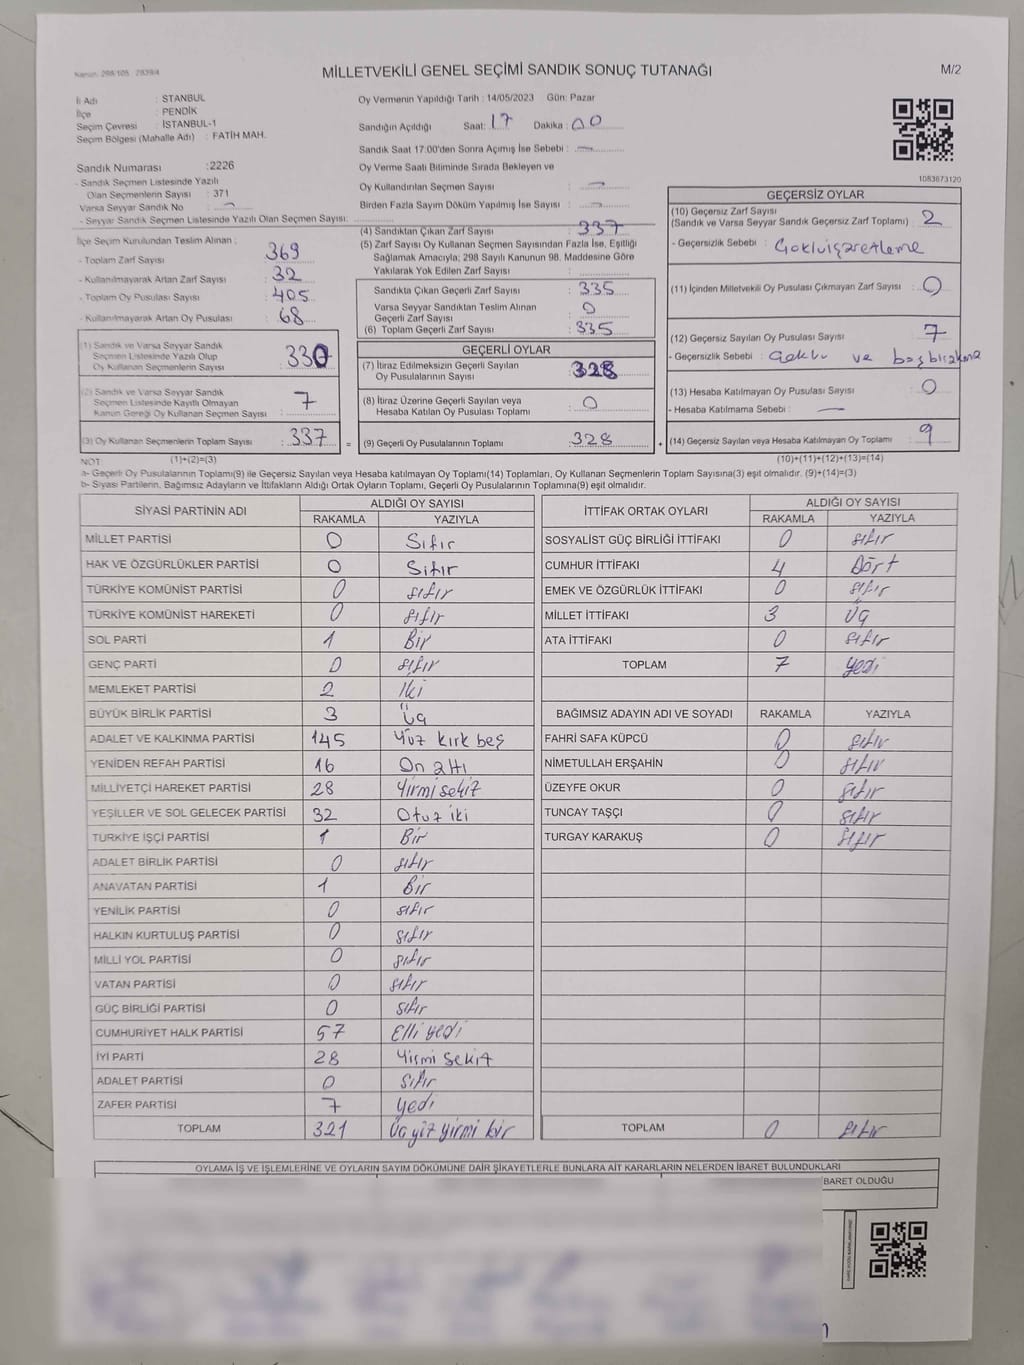 Kanun: 298/105 2839/4
MİLLETVEKİLİ GENEL SEÇİMİ SANDIK SONUÇ TUTANAĞI
M/2
İl Adı : STANBUL
İlçe : PENDİK
Seçim Çevresi : İSTANBUL-1
Seçim Bölgesi (Mahalle Adı) : FATİH MAH.
Sandık Numarası :2226
- Sandık Seçmen Listesinde Yazılı
Olan Seçmenlerin Sayısı : 371
Varsa Seyyar Sandık No :
- Seyyar Sandık Seçmen Listesinde Yazılı Olan Seçmen Sayısı:
Oy Vermenin Yapıldığı Tarih : 14/05/2023 Gün: Pazar
Sandığın Açıldığı Saat: 17 Dakika : 00
Sandık Saat 17:00'den Sonra Açımış İse Sebebi : —
Oy Verme Saati Bitiminde Sırada Bekleyen ve
Oy Kullandırılan Seçmen Sayısı : —
Birden Fazla Sayım Döküm Yapılmış İse Sayısı : —
1083873120
İlçe Seçim Kurulundan Teslim Alınan :
- Toplam Zarf Sayısı : 369
- Kullanılmayarak Artan Zarf Sayısı : 32
- Toplam Oy Pusulası Sayısı : 405
- Kullanılmayarak Artan Oy Pusulası : 68
(1) Sandık ve Varsa Seyyar Sandık
Seçmen Listesinde Yazılı Olup
Oy Kullanan Seçmenlerin Sayısı : 330
(2) Sandık ve Varsa Seyyar Sandık
Seçmen Listesinde Kayıtlı Olmayan
Kanun Gereği Oy Kullanan Seçmen Sayısı : 7
(3) Oy Kullanan Seçmenlerin Toplam Sayısı : 337 =
(4) Sandıktan Çıkan Zarf Sayısı : 337
(5) Zarf Sayısı Oy Kullanan Seçmen Sayısından Fazla İse, Eşitliği
Sağlamak Amacıyla; 298 Sayılı Kanunun 98. Maddesine Göre
Yakılarak Yok Edilen Zarf Sayısı :
Sandıkta Çıkan Geçerli Zarf Sayısı : 335
Varsa Seyyar Sandıktan Teslim Alınan
Geçerli Zarf Sayısı : 0
(6) Toplam Geçerli Zarf Sayısı : 335
GEÇERLİ OYLAR
(7) İtiraz Edilmeksizin Geçerli Sayılan
Oy Pusulalarının Sayısı : 328
(8) İtiraz Üzerine Geçerli Sayılan veya
Hesaba Katılan Oy Pusulası Toplamı : 0
(9) Geçerli Oy Pusulalarının Toplamı : 328 +
GEÇERSİZ OYLAR
(10) Geçersiz Zarf Sayısı
(Sandık ve Varsa Seyyar Sandık Geçersiz Zarf Toplamı) : 2
- Geçersizlik Sebebi : Çokluişaretleme
(11) İçinden Milletvekili Oy Pusulası Çıkmayan Zarf Sayısı : 0
(12) Geçersiz Sayılan Oy Pusulası Sayısı : 7
- Geçersizlik Sebebi : Çoklu ve boş bırakma
(13) Hesaba Katılmayan Oy Pusulası Sayısı : 0
- Hesaba Katılmama Sebebi : —
(14) Geçersiz Sayılan veya Hesaba Katılmayan Oy Toplamı : 9
NOT: (1)+(2)=(3)
(10)+(11)+(12)+(13)=(14)
a- Geçerli Oy Pusulalarının Toplamı(9) ile Geçersiz Sayılan veya Hesaba katılmayan Oy Toplamı(14) Toplamları, Oy Kullanan Seçmenlerin Toplam Sayısına(3) eşit olmalıdır. (9)+(14)=(3)
b- Siyasi Partilerin, Bağımsız Adayların ve İttifakların Aldığı Ortak Oyların Toplamı, Geçerli Oy Pusulalarının Toplamına(9) eşit olmalıdır.
SİYASİ PARTİNİN ADI ALDIĞI OY SAYISI
RAKAMLA YAZIYLA
MİLLET PARTİSİ 0 Sıfır
HAK VE ÖZGÜRLÜKLER PARTİSİ 0 Sıfır
TÜRKİYE KOMÜNİST PARTİSİ 0 sıfır
TÜRKİYE KOMÜNİST HAREKETİ 0 sıfır
SOL PARTİ 1 Bir
GENÇ PARTİ 0 sıfır
MEMLEKET PARTİSİ 2 İki
BÜYÜK BİRLİK PARTİSİ 3 üç
ADALET VE KALKINMA PARTİSİ 145 Yüz kırk beş
YENİDEN REFAH PARTİSİ 16 On altı
MİLLİYETÇİ HAREKET PARTİSİ 28 Yirmi sekiz
YEŞİLLER VE SOL GELECEK PARTİSİ 32 Otuz iki
TÜRKİYE İŞÇİ PARTİSİ 1 Bir
ADALET BİRLİK PARTİSİ 0 sıfır
ANAVATAN PARTİSİ 1 Bir
YENİLİK PARTİSİ 0 sıfır
HALKIN KURTULUŞ PARTİSİ 0 sıfır
MİLLİ YOL PARTİSİ 0 sıfır
VATAN PARTİSİ 0 sıfır
GÜÇ BİRLİĞİ PARTİSİ 0 sıfır
CUMHURİYET HALK PARTİSİ 57 Elli yedi
İYİ PARTİ 28 Yirmi Sekiz
ADALET PARTİSİ 0 Sıfır
ZAFER PARTİSİ 7 yedi
TOPLAM 321 Üç yüz yirmi bir
İTTİFAK ORTAK OYLARI ALDIĞI OY SAYISI
RAKAMLA YAZIYLA
SOSYALİST GÜÇ BİRLİĞİ İTTİFAKI 0 sıfır
CUMHUR İTTİFAKI 4 Dört
EMEK VE ÖZGÜRLÜK İTTİFAKI 0 sıfır
MİLLET İTTİFAKI 3 Üç
ATA İTTİFAKI 0 sıfır
TOPLAM 7 yedi
BAĞIMSIZ ADAYIN ADI VE SOYADI RAKAMLA YAZIYLA
FAHRİ SAFA KÜPCÜ 0 sıfır
NİMETULLAH ERŞAHİN 0 sıfır
ÜZEYFE OKUR 0 sıfır
TUNCAY TAŞÇI 0 sıfır
TURGAY KARAKUŞ 0 sıfır
TOPLAM 0 sıfır
OYLAMA İŞ VE İŞLEMLERİNE VE OYLARIN SAYIM DÖKÜMÜNE DAİR ŞİKAYETLERLE BUNLARA AİT KARARLARIN NELERDEN İBARET BULUNDUKLARI
BARET OLDUĞU